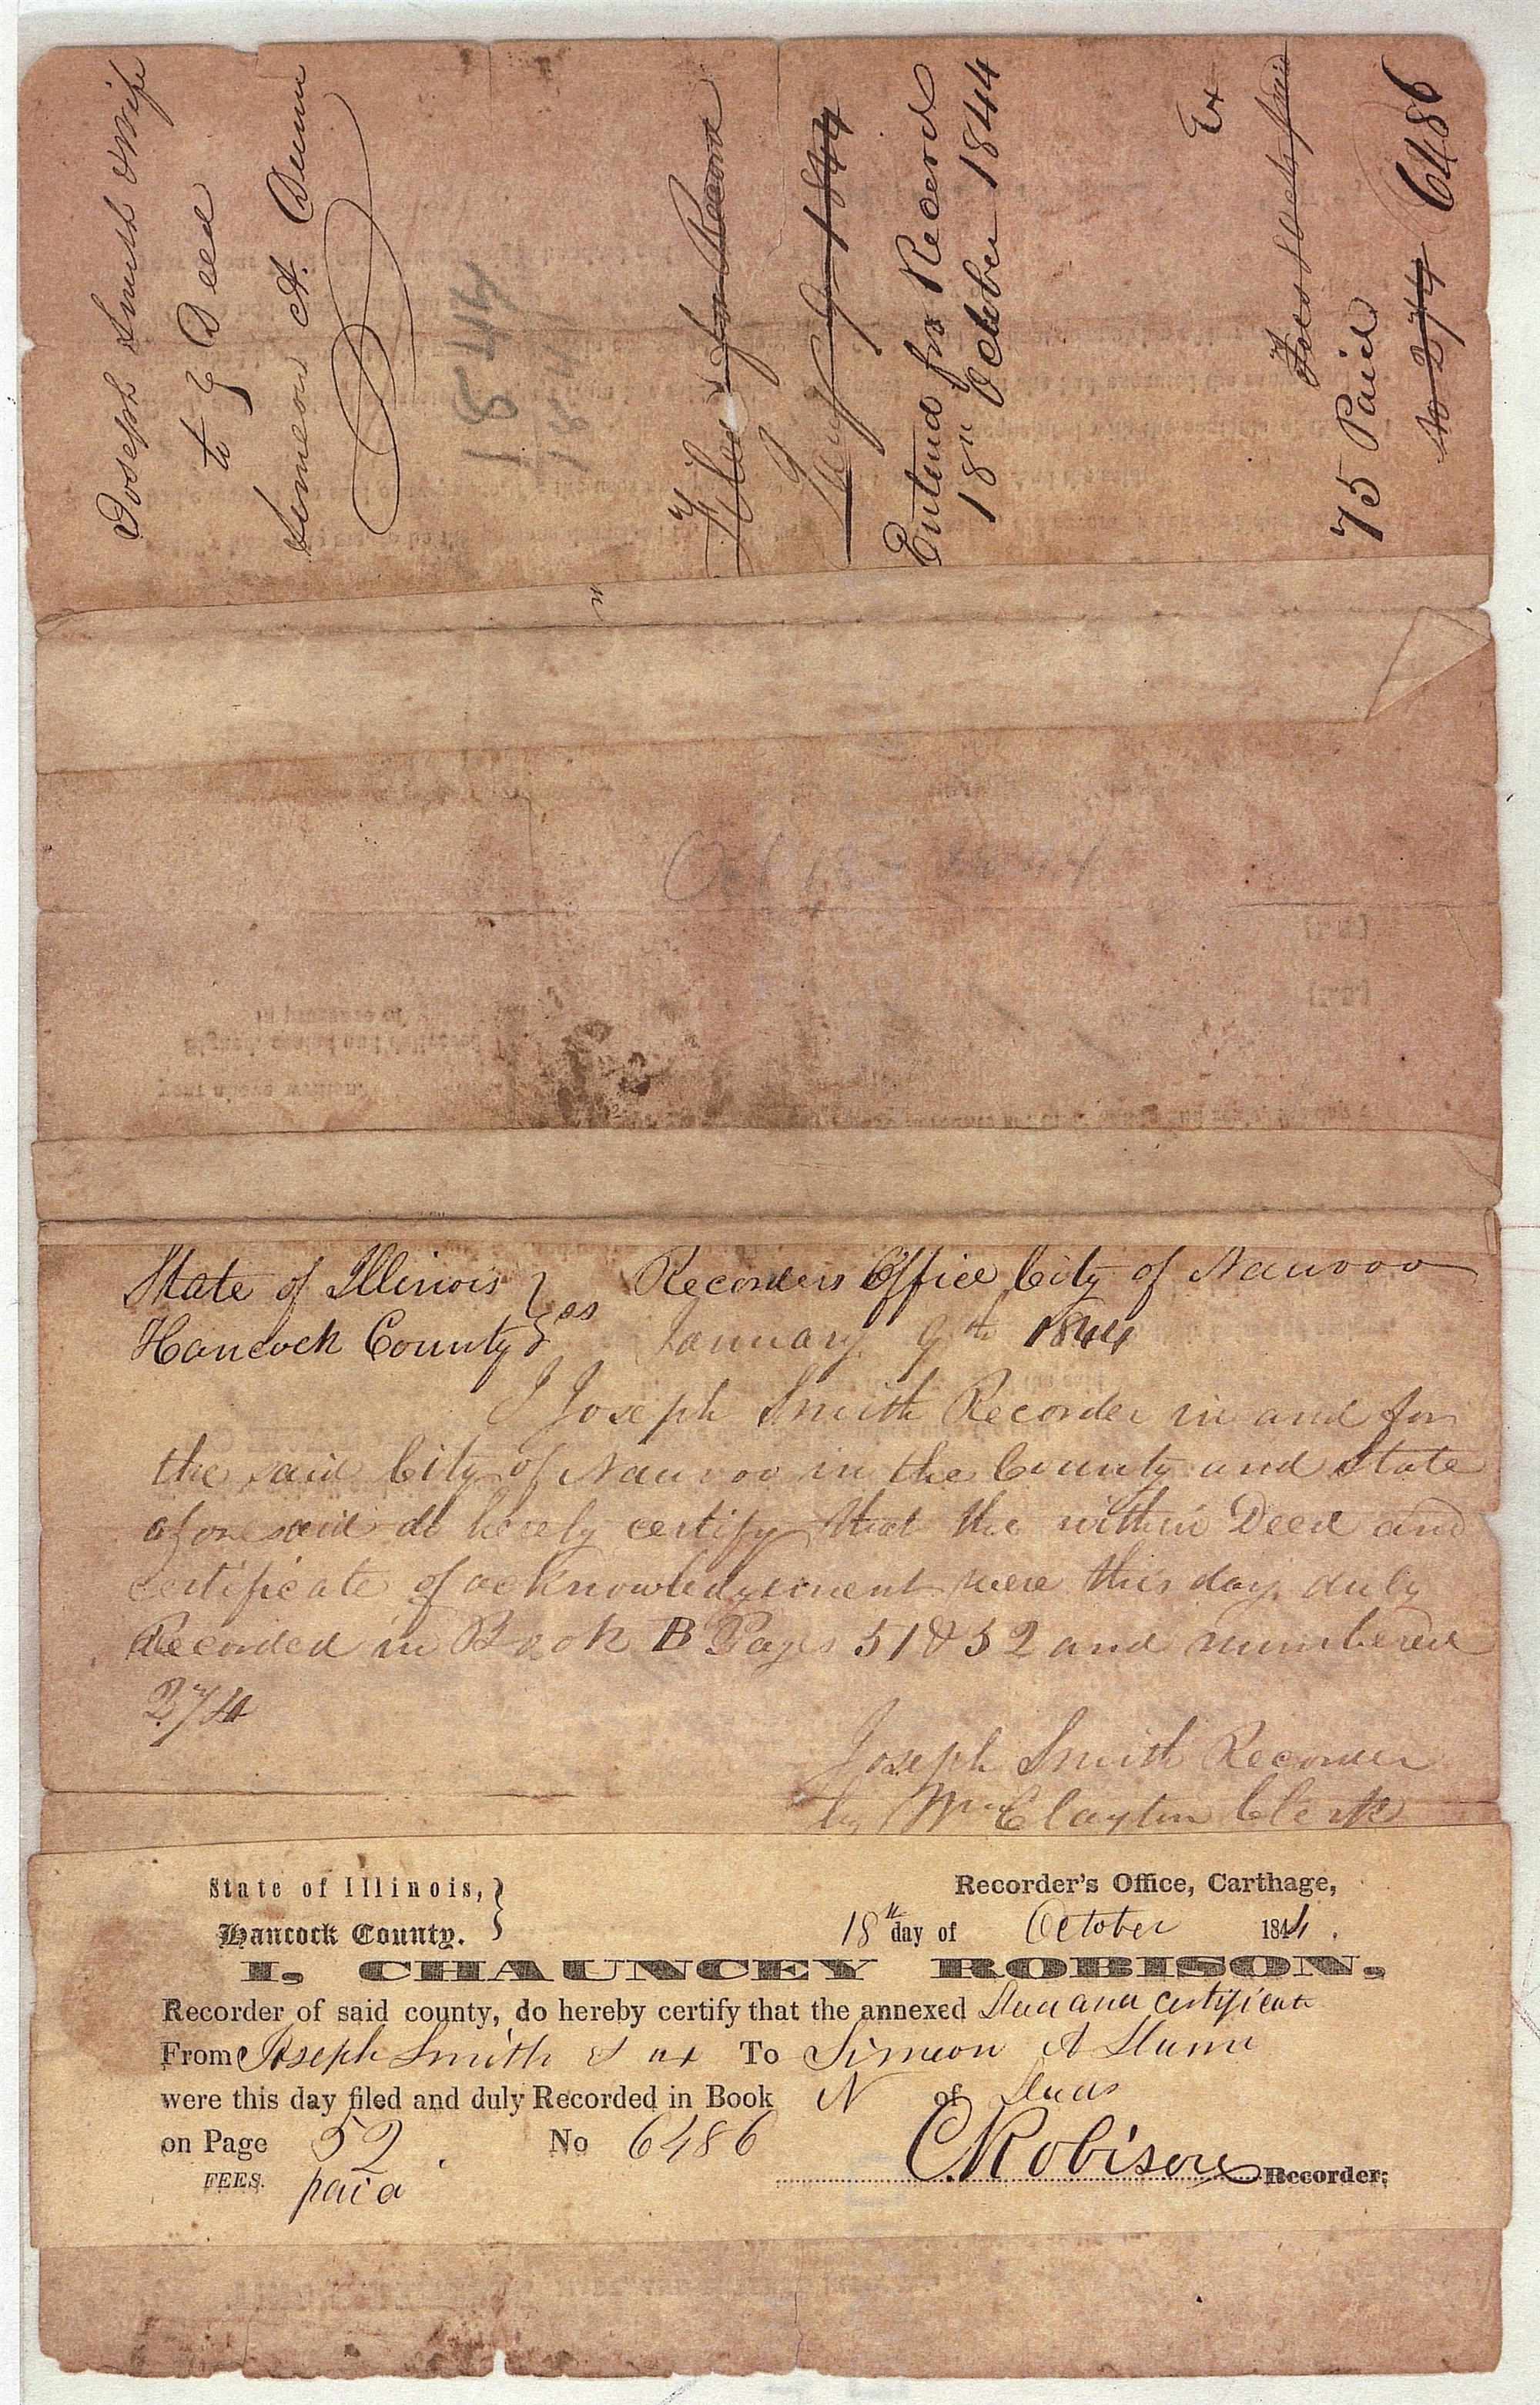 Joseph Smith & Wife
to } Deed
Simeon A. Dunn
1844
Filed for Record
Jany 9 1844
Entered for Record
18th October 1844
Ex
Fees
75 Paid
No 274 6486
Oct 18 1844
State of Illinois } ss Recorders Office City of Nauvoo
Hancock County } January 9th 1844
I Joseph Smith Recorder in and for
the said City of Nauvoo in the County and State
aforesaid do hereby certify that the within Deed and
certificate of acknowledgement were this day duly
Recorded in Book B Pages 51 & 52 and numbered
274
Joseph Smith Recorder
by Wm Clayton Clerk
State of Illinois, } Recorder's Office, Carthage,
Hancock County. } 18th day of October 1844.
I, CHAUNCEY ROBISON,
Recorder of said county, do hereby certify that the annexed Deed and certificate
From Joseph Smith & ux To Simeon A Dunn
were this day filed and duly Recorded in Book N of Deeds
on Page 52. No 6486
C Robison Recorder;
FEES. paid